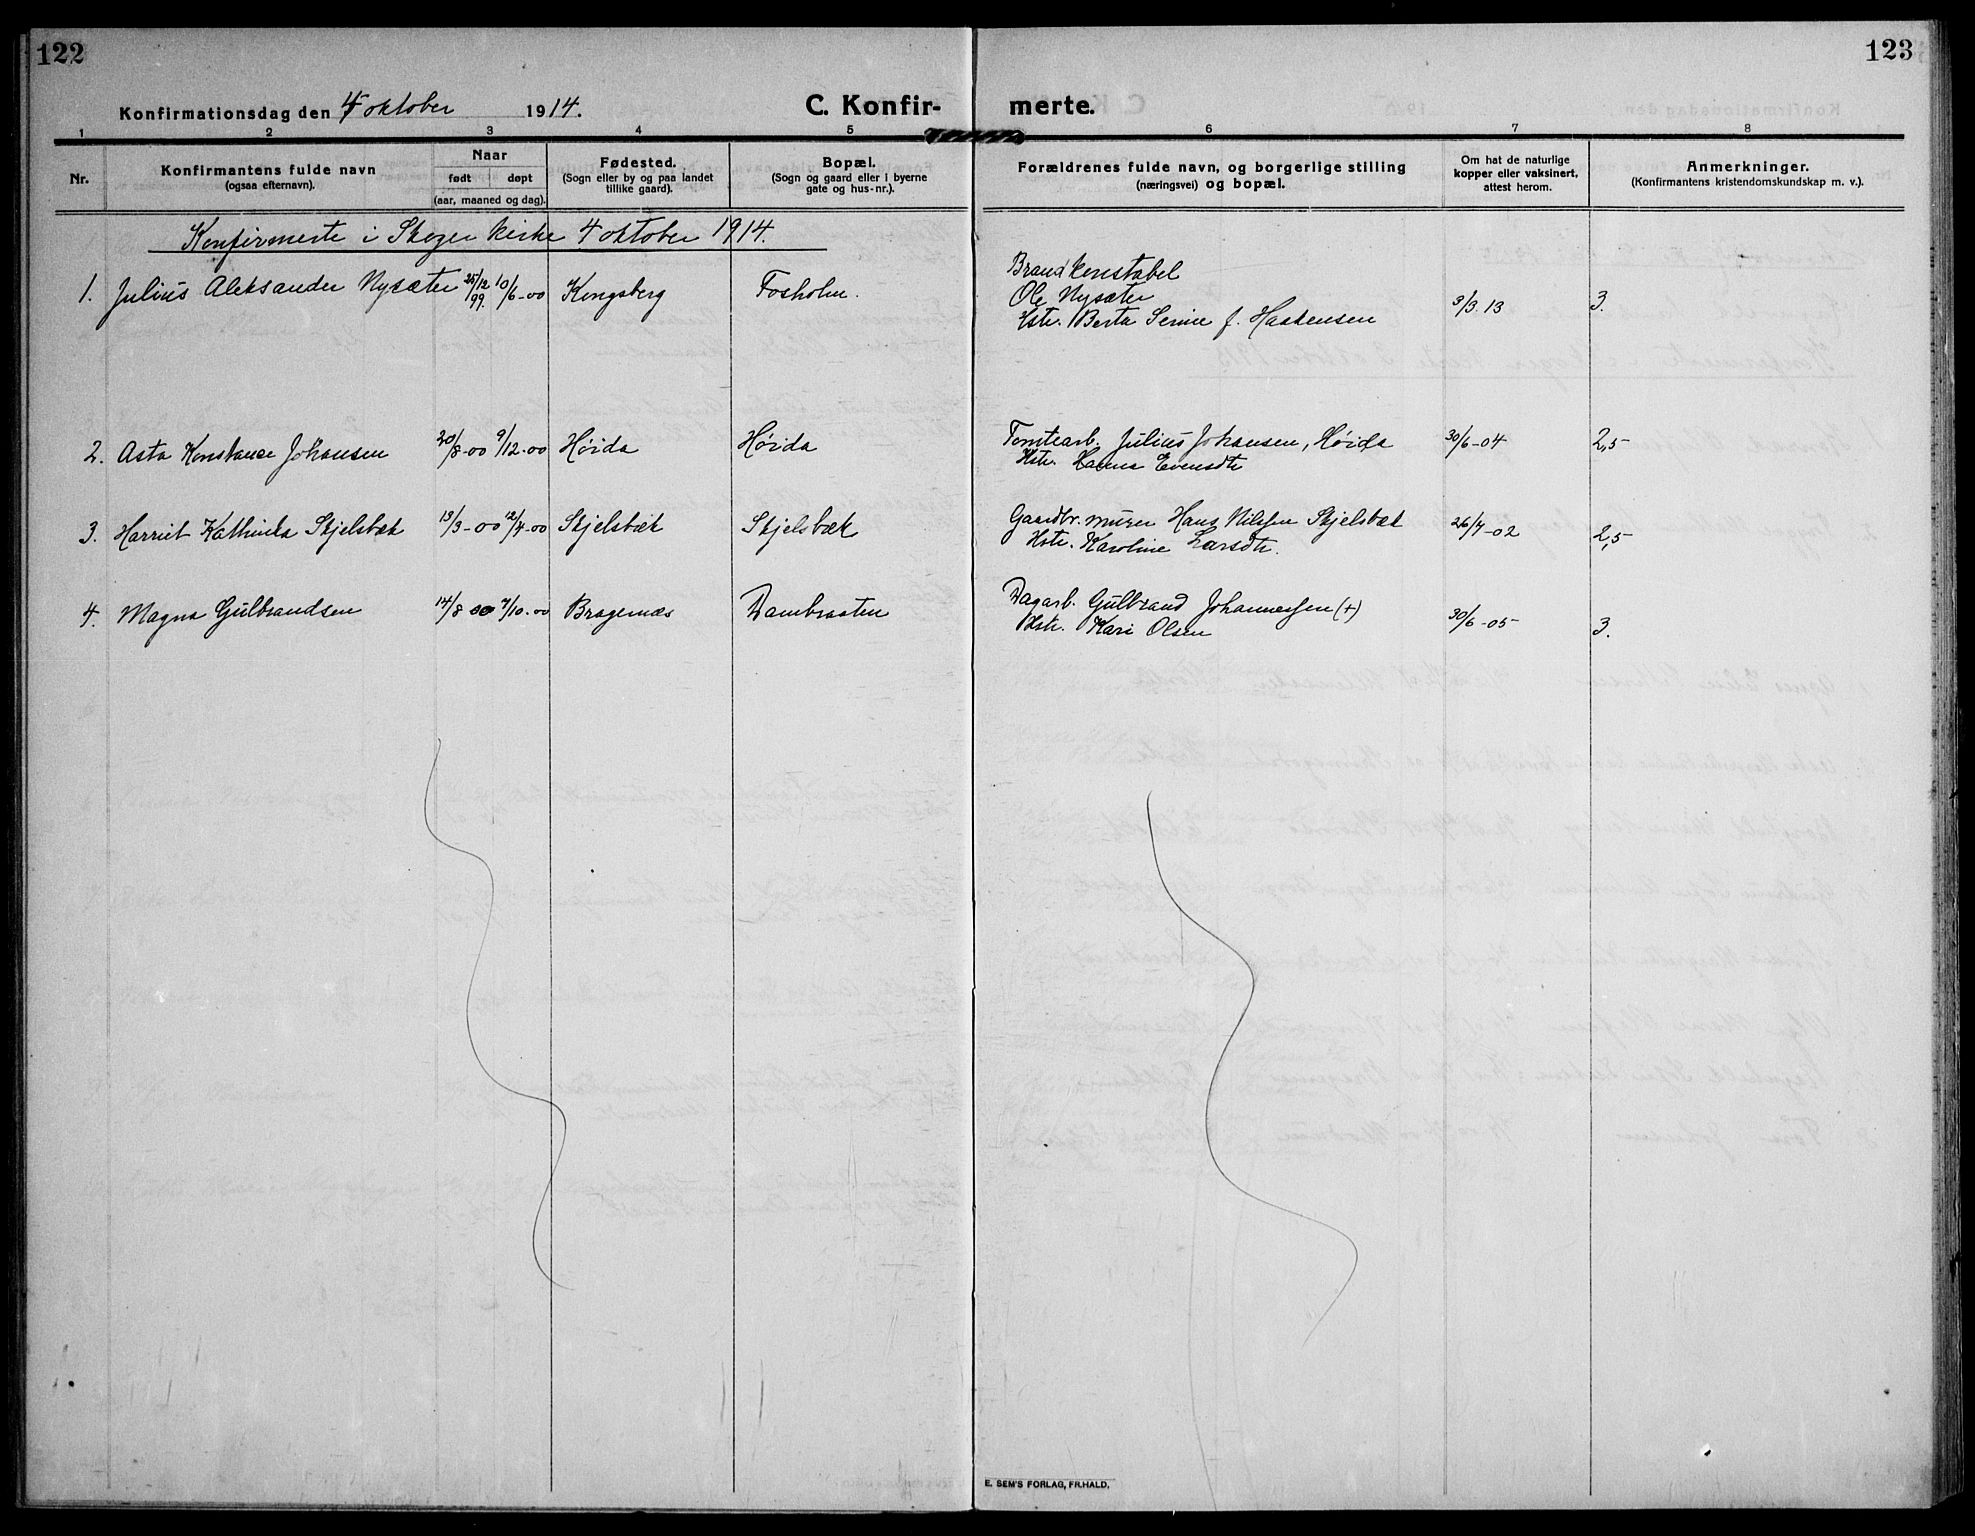 122
123
Konfirmationsdag den 4 oktober 1914.
C. Konfir-
merte.
1 2 3 4 5 6 7 8
Nr.
Konfirmantens fulde navn
(ogsaa efternavn).
Naar
født døpt
(aar, maaned og dag).
Fødested.
(Sogn eller by og paa landet
tillike gaard).
Bopæl.
(Sogn og gaard eller i byerne
gate og hus-nr.).
Forældrenes fulde navn, og borgerlige stilling
(næringsvei) og bopæl.
Om hat de naturlige
kopper eller vaksinert,
attest herom.
Anmerkninger.
(Konfirmantens kristendomskundskap m. v.).
Konfirmerte i Skoger kirke 4 oktober 1914.
1. Julius Aleksander Nysæter 25/12 99. 10/6-00 Kongsberg Fosholm.
Brandkonstabel
Ole Nysæter
Hstr. Berta Serine f. Haakensen
3/3.13 3.
2. Asta Konstanse Johansen 20/8-00 9/12-00 Høida Høida
Tomtearb. Julius Johansen, Høida
Hstr. Hanna Evensdtr
30/6-04 2,5
3. Harriet Kathinka Skjelsbæk 13/3-00 12/4-00 Skjelsbæk Skjelsbæk
Gaardbr. murer Hans Nilssen Skjelsbæk
Hstr. Karoline Larsdtr.
26/7-02 2,5
4. Magna Gulbrandsen 14/8 00 7/10-00 Bragernæs Dambraaten
Dagarb. Gulbrand Johannessen (+)
Hstr. Kari Olsen
30/6-05 3.
E. SEM'S FORLAG, FR.HALD.